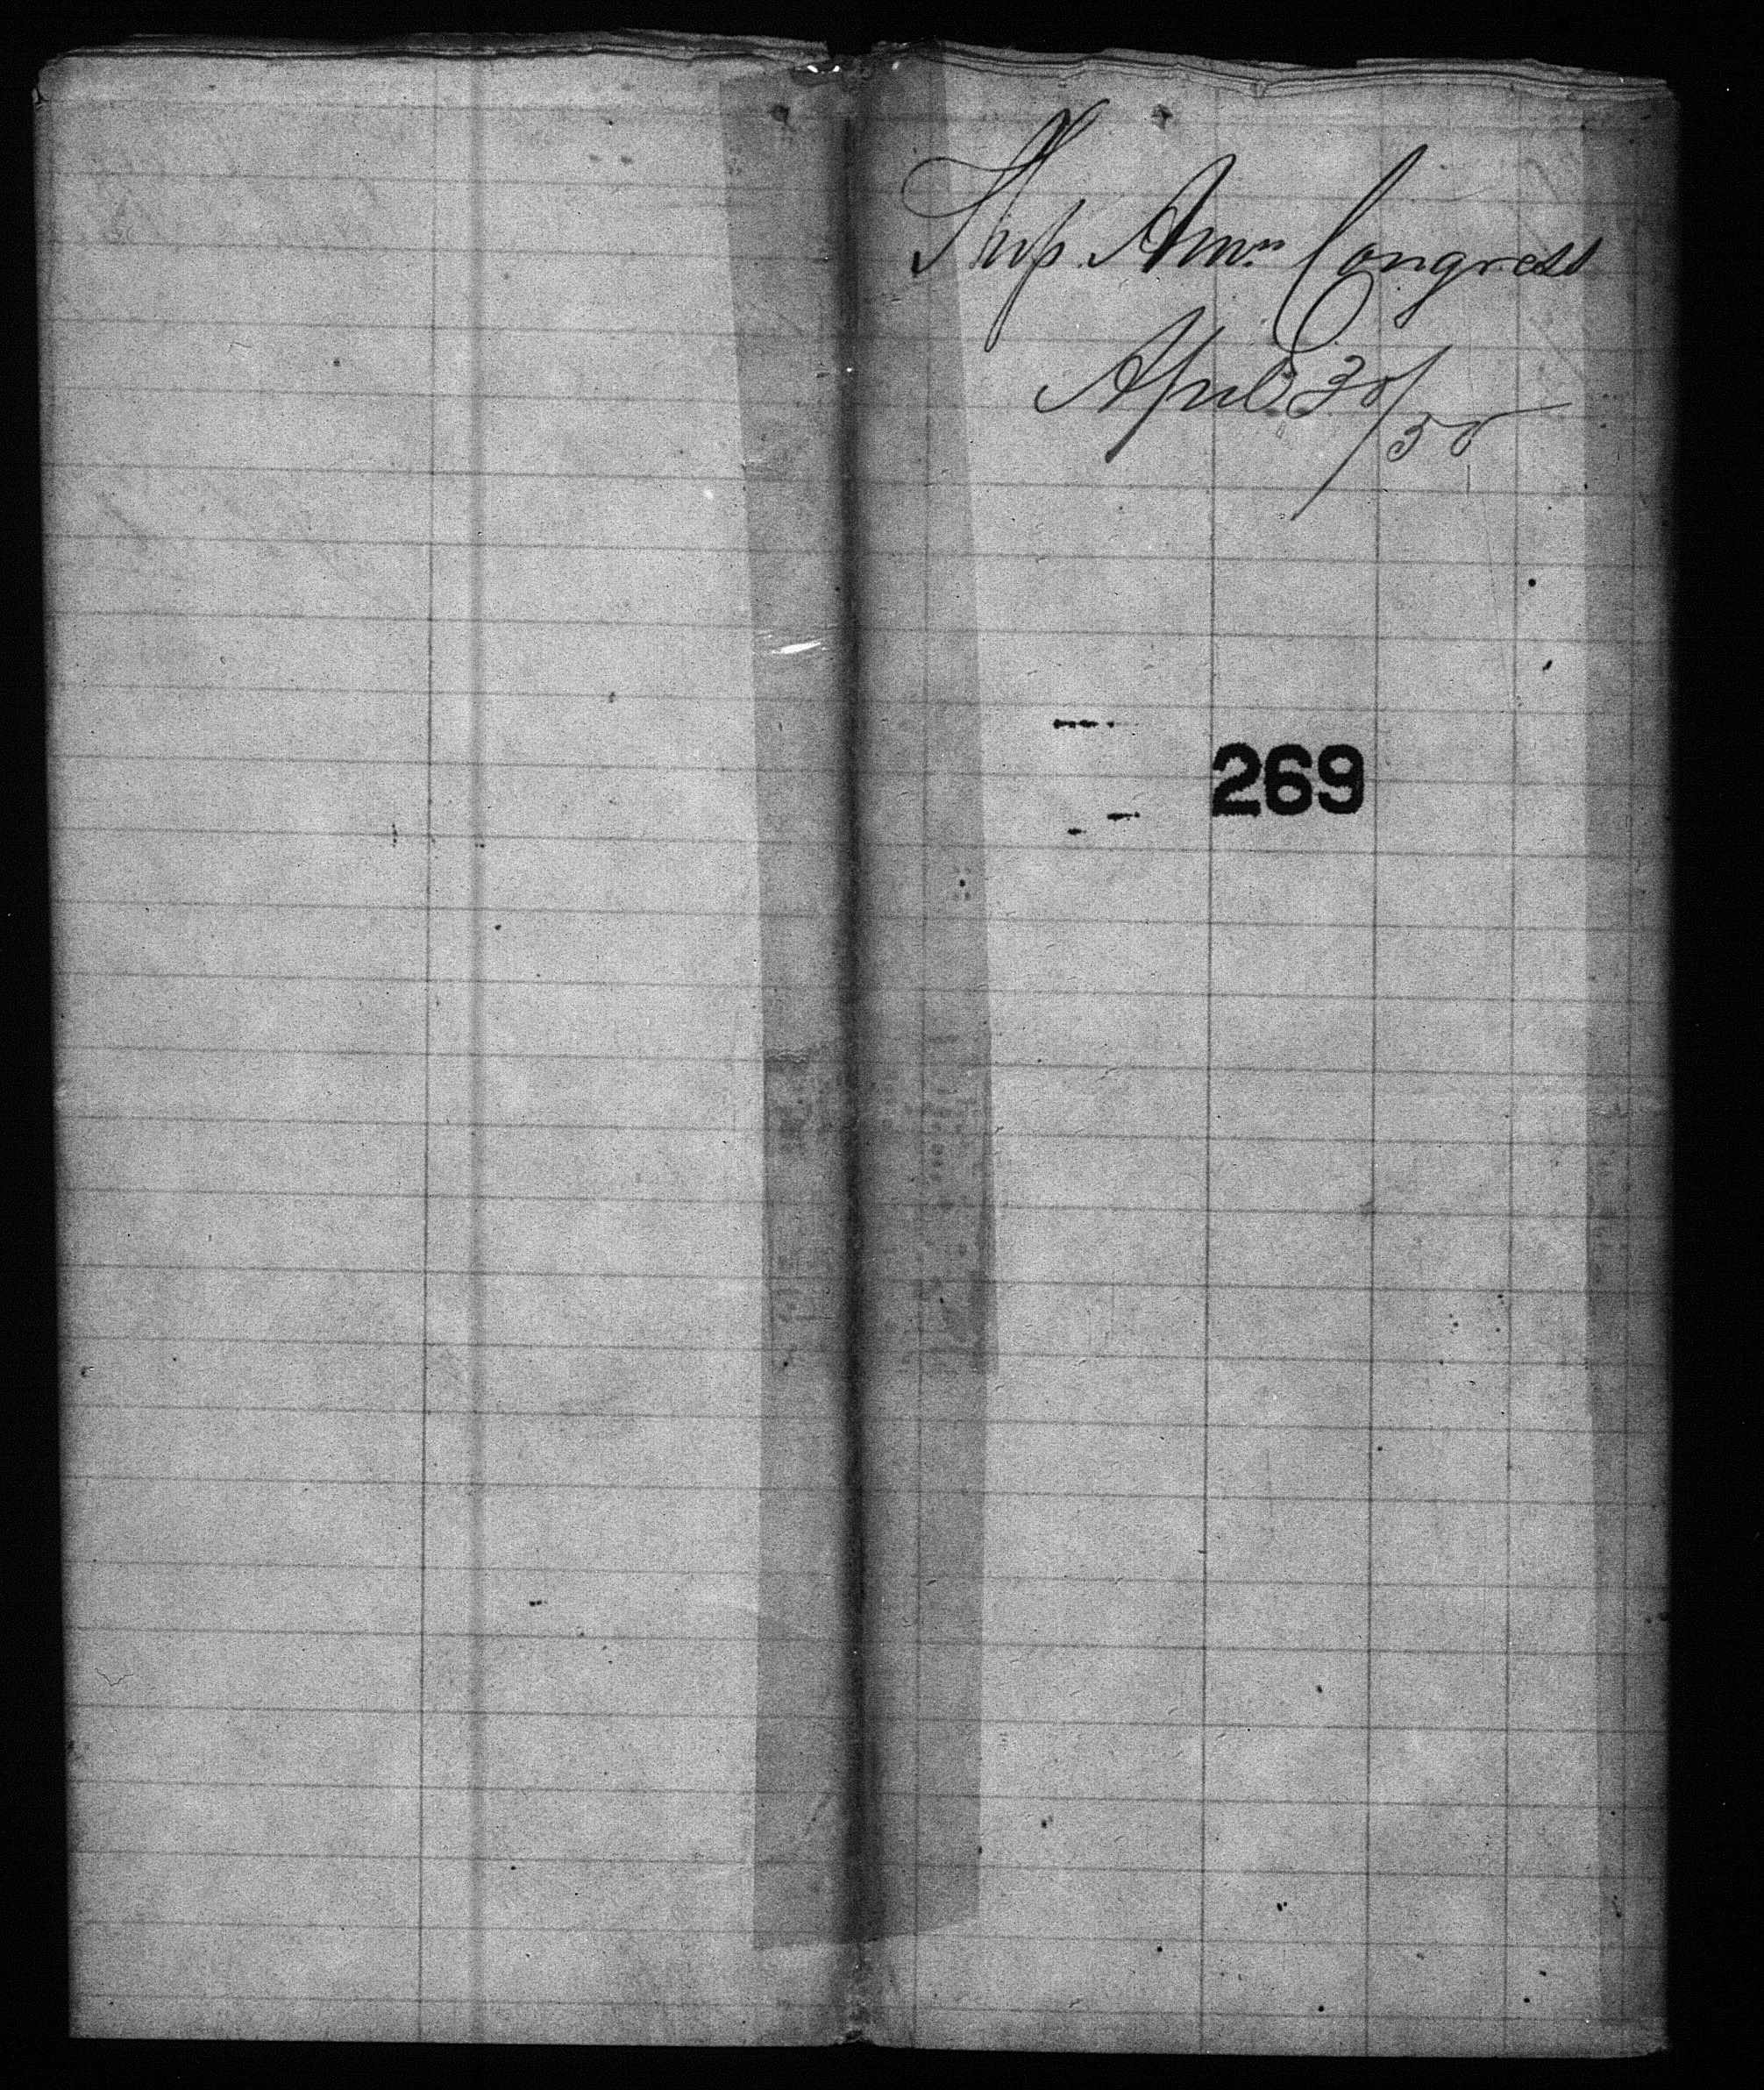 Ship Amn Congress
April 30/50
269